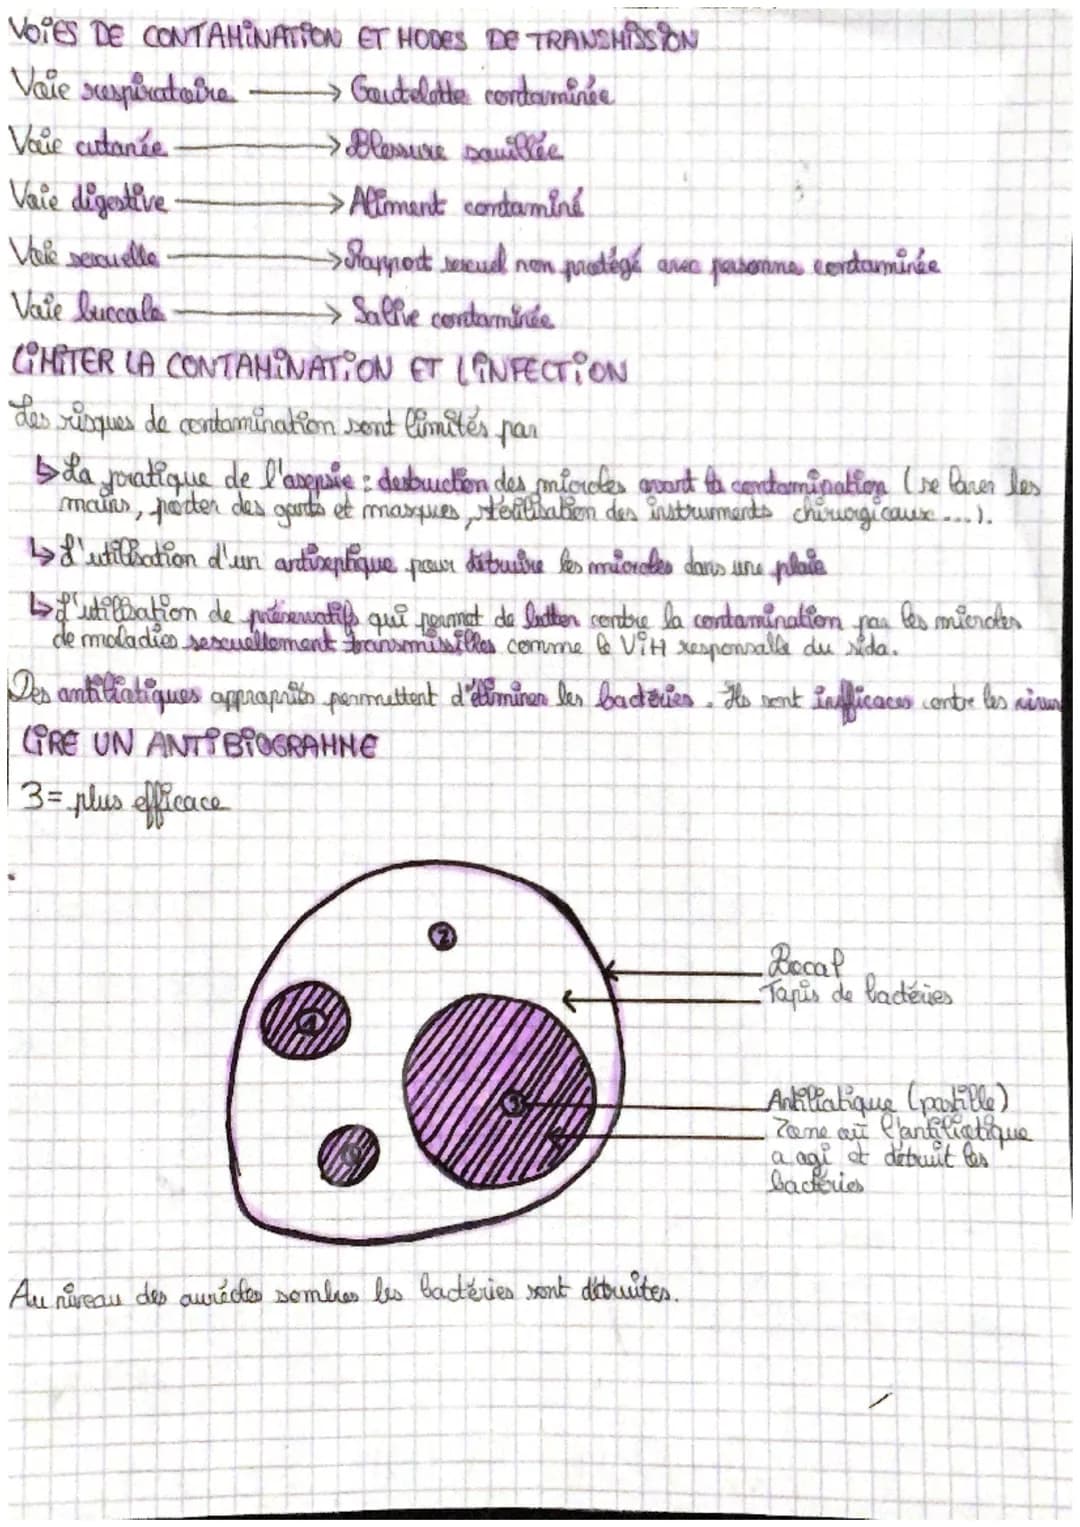 VOIES DE CONTAMINATION ET MODES DE TRANSMISSION
Voie respiratoire → Goutelette contaminée
Voie cutanée → Blessure souillée
Voie digestive → Aliment contaminé
Voie sexuelle → Rapport sexuel non protégé avec personne contaminée
Voie buccale → Salive contaminée
LIMITER LA CONTAMINATION ET L'INFECTION
Les risques de contamination sont limités par
↳ La pratique de l'asepsie : destruction des microbes avant la contamination (se laver les
mains, porter des gants et masques, stérilisation des instruments chirurgicaux ...).
↳ L'utilisation d'un antiseptique pour détruire les microbes dans une plaie
↳ L'utilisation de préservatifs qui permet de lutter contre la contamination par les microbes
de maladies sexuellement transmissibles comme le VIH responsable du sida.
Des antibiotiques appropriés permettent d'éliminer les bactéries. Ils sont inefficaces contre les virus
LIRE UN ANTIBIOGRAMME
3 = plus efficace
2
Bocal
Tapis de bactéries
3
Antibiotique (pastille)
Zone où l'antibiotique
a agi et détruit les
bactéries
Au niveau des auréoles sombres les bactéries sont détruites.